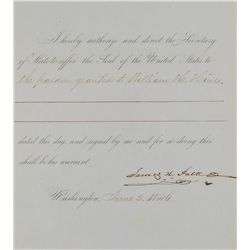 I hereby authorize and direct the Secretary
of State to affix the Seal of the United States to
the pardon granted to William H. Hines
dated this day, and signed by me and for so doing this
shall be his warrant.
James K. Polk
Washington, June 5. 1846